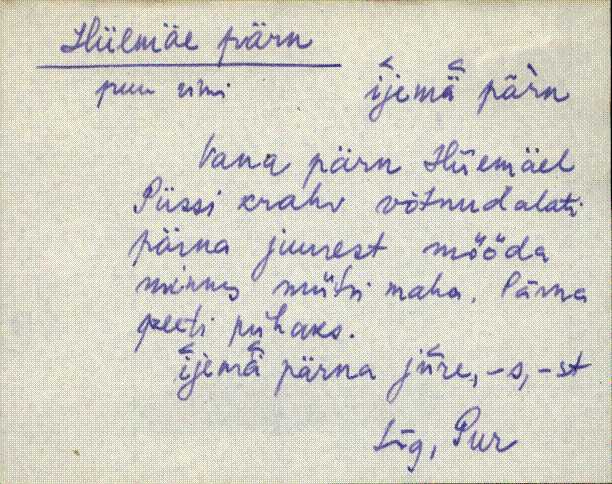 Hiiemäe pärn
puu nimi
ijemä pärn
Vana pärn Hiiemäel
Püssi krahv võtnud alati
pärna juurest mööda
minnes mütsi maha. Pärna
peeti pühaks.
ijemä pärna jūre, -s, -st
Lüg, Pur